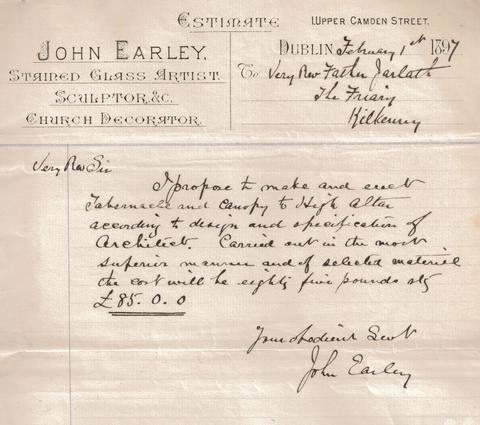 ESTIMATE
1 UPPER CAMDEN STREET.
JOHN EARLEY,
STAINED GLASS ARTIST.
SCULPTOR, &C.
CHURCH DECORATOR.
DUBLIN February 1st 1897
To Very Rev Father Jarlath
The Friary
Kilkenny
Very Rev Sir
I propose to make and erect
Tabernacle and canopy to High Altar
according to design and specification of
Architect. Carried out in the most
superior manner and of selected material
the cost will be eighty five pounds stg
£85. 0. 0
Your obedient Servt
John Earley